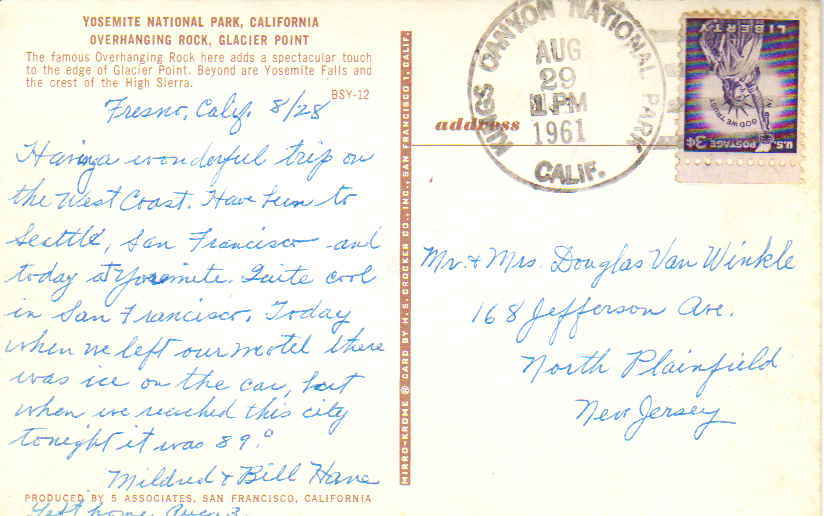 YOSEMITE NATIONAL PARK, CALIFORNIA
OVERHANGING ROCK, GLACIER POINT
The famous Overhanging Rock here adds a spectacular touch
to the edge of Glacier Point. Beyond are Yosemite Falls and
the crest of the High Sierra.
BSY-12
Fresno, Calif. 8/28
Having a wonderful trip on
the West Coast. Have been to
Seattle, San Francisco and
today at Yosemite. Quite cool
in San Francisco. Today
when we left our motel there
was ice on the car, but
when we reached this city
tonight it was 89.°
Mildred & Bill
PRODUCED BY 5 ASSOCIATES, SAN FRANCISCO, CALIFORNIA
home Aug. 3
MIRRO-KROME ® CARD BY H. S. CROCKER CO., INC., SAN FRANCISCO 1, CALIF.
address
KINGS CANYON NATIONAL PARK
AUG
29
1 PM
1961
CALIF.
U.S. POSTAGE 3¢
IN GOD WE TRUST
LIBERTY
Mr. & Mrs. Douglas Van Winkle
168 Jefferson Ave.
North Plainfield
New Jersey